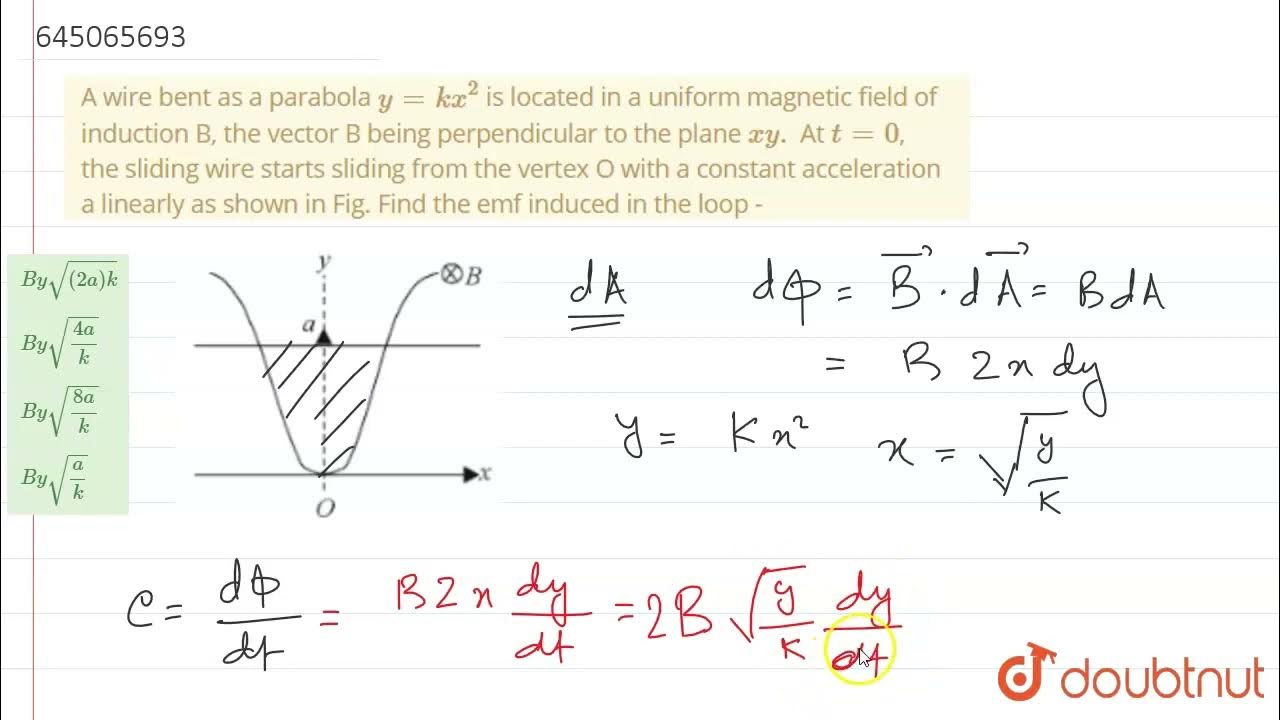 645065693
A wire bent as a parabola y = kx² is located in a uniform magnetic field of
induction B, the vector B being perpendicular to the plane xy. At t = 0,
the sliding wire starts sliding from the vertex O with a constant acceleration
a linearly as shown in Fig. Find the emf induced in the loop -
By√((2a)k)
By√(4a/k)
By√(8a/k)
By√(a/k)
y
⊗B
a
x
O
dA
dφ = B⃗ · dA⃗ = B dA
= B 2x dy
y = Kx² x = √(y/K)
e = dφ/dt = B2x dy/dt = 2B √(y/K) dy/dt
doubtnut